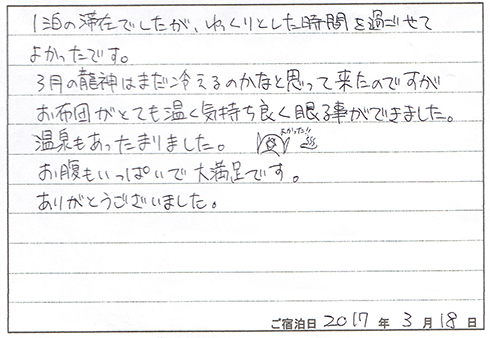 1泊の滞在でしたが、ゆっくりとした時間を過ごせて
よかったです。
3月の龍神はまだ冷えるのかなと思って来たのですが
お布団がとても温く気持ち良く眠る事ができました。
温泉もあったまりました。 よかった!!
お腹もいっぱいで大満足です。
ありがとうございました。
ご宿泊日 2017 年 3 月 18 日